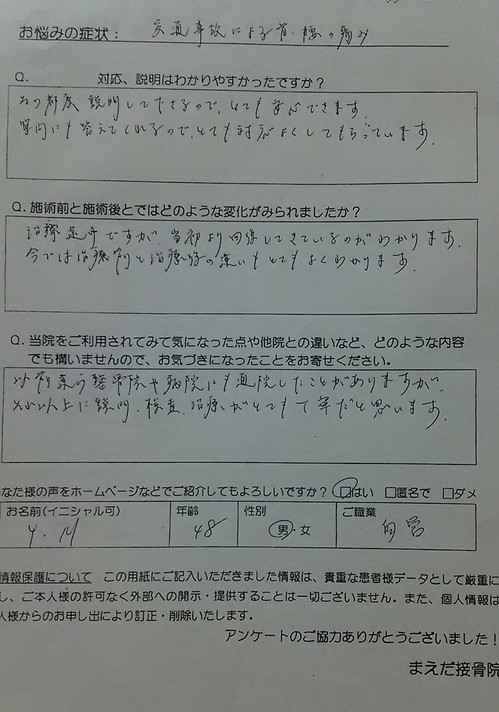 お悩みの症状: 交通事故による首・腰の痛み
Q. 対応、説明はわかりやすかったですか?
その都度説明して下さるので、とても安心できます。
質問にも答えてくれるので、とても対応よくしてもらっています。
Q. 施術前と施術後とではどのような変化がみられましたか?
治療途中ですが、当初より回復してきているのがわかります。
今では治療前と治療後の違いもとてもよくわかります。
Q. 当院をご利用されてみて気になった点や他院との違いなど、どのような内容
でも構いませんので、お気づきになったことをお寄せください。
以前違う整骨院や病院にも通院したことがありますが、
それ以上に説明、検査、治療がとても丁寧だと思います。
なた様の声をホームページなどでご紹介してもよろしいですか? □はい □匿名で □ダメ
お名前(イニシャル可) 年齢 性別 ご職業
Y. M 48 男・女 自営
情報保護について この用紙にご記入いただきました情報は、貴重な患者様データとして厳重に
し、ご本人様の許可なく外部への開示・提供することは一切ございません。また、個人情報は
人様からのお申し出により訂正・削除いたします。
アンケートのご協力ありがとうございました!
まえだ接骨院